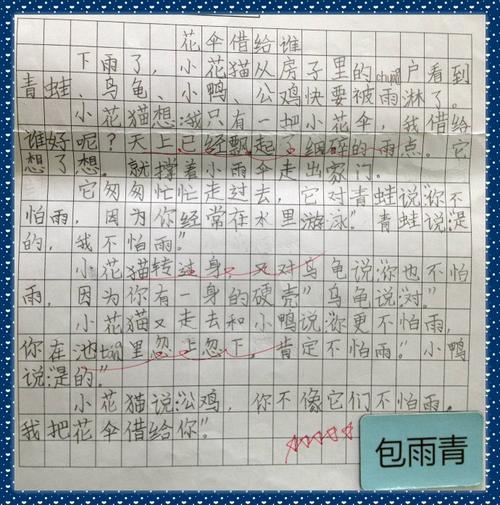 花伞借给谁
下雨了，小花猫从房子里的chuāng户看到
青蛙、乌龟、小鸭、公鸡快要被雨淋了。
小花猫想:我只有一把小花伞，我借给
谁好呢？天上已经飘起了细碎的雨点。它
想了想。就撑着小雨伞走出家门。
它匆匆忙忙走过去，它对青蛙说:"你不
怕雨，因为你经常在水里游泳"青蛙说:"是
的，我不怕雨。"
小花猫转过身，又对乌龟说:"你也不怕
雨，因为你有一身的硬壳"乌龟说:"对"
小花猫又走去和小鸭说:"你更不怕雨，
你在池táng里忽上忽下，肯定不怕雨"小鸭
说:"是的。"
小花猫说:"公鸡，你不像它们不怕雨。
我把花伞借给你"
包雨青